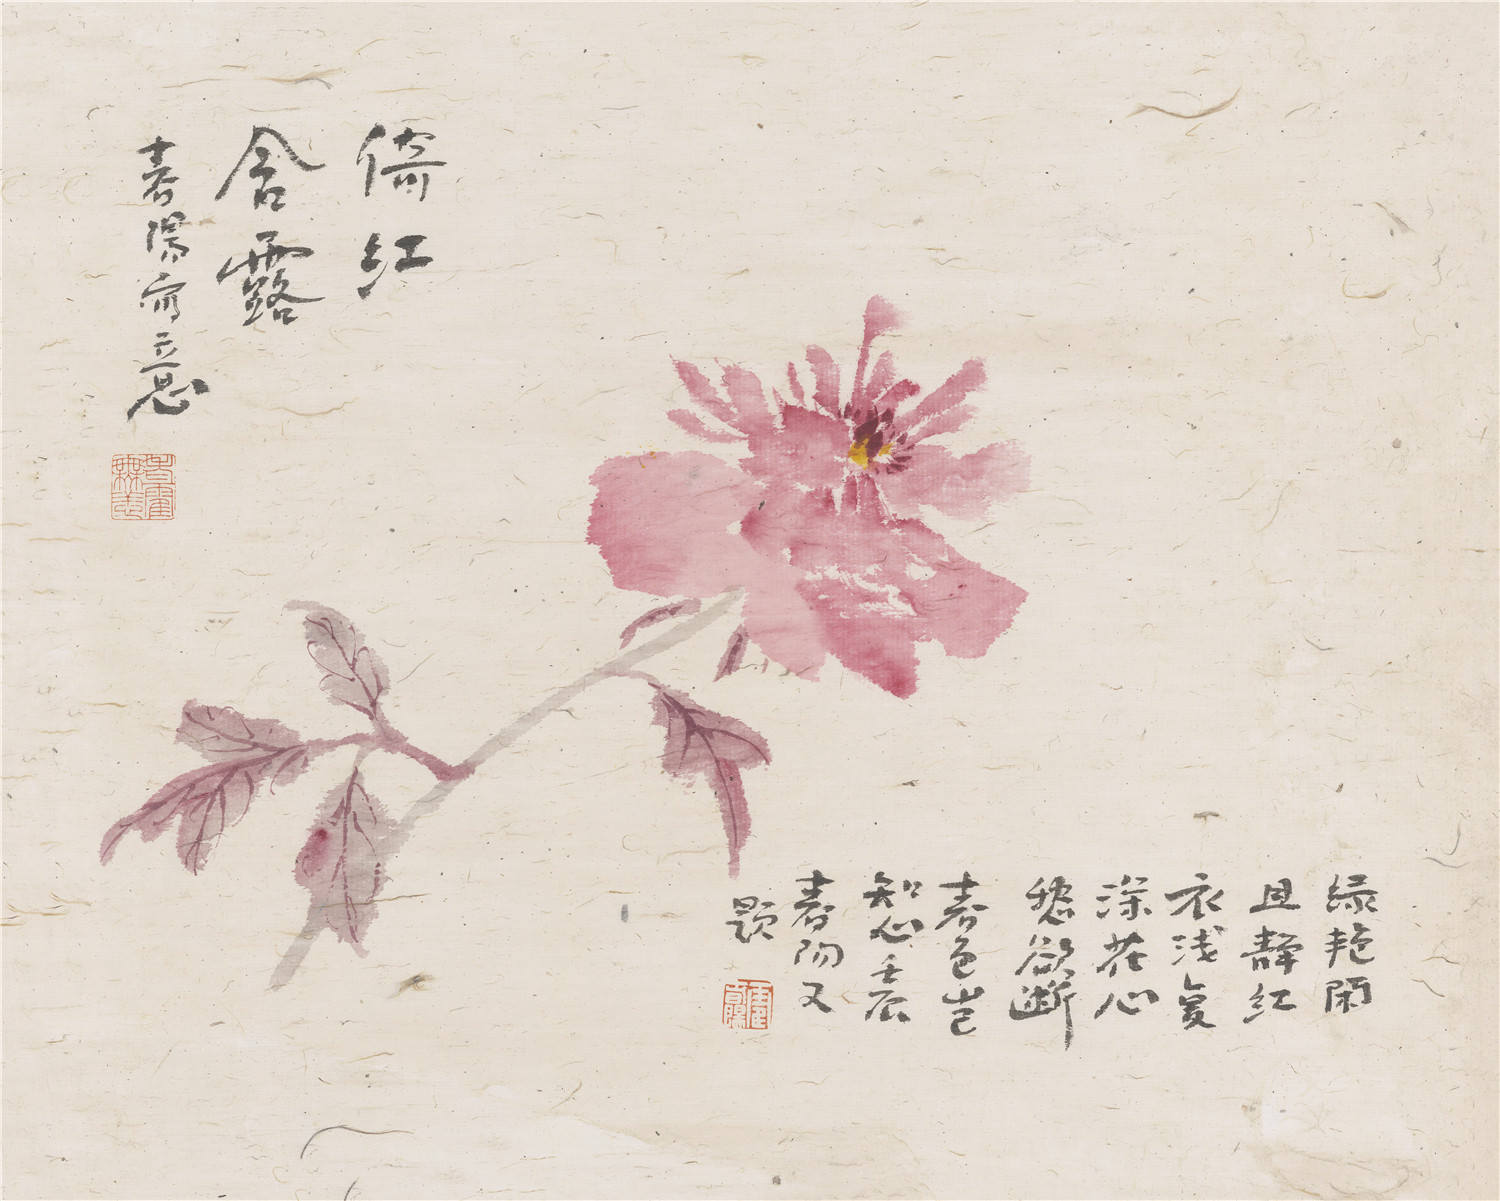 倚红
含露
春陽写意
绿艳闲
且静红
衣浅复
深花心
愁欲断
春色岂
知心壬辰
春阳又
题